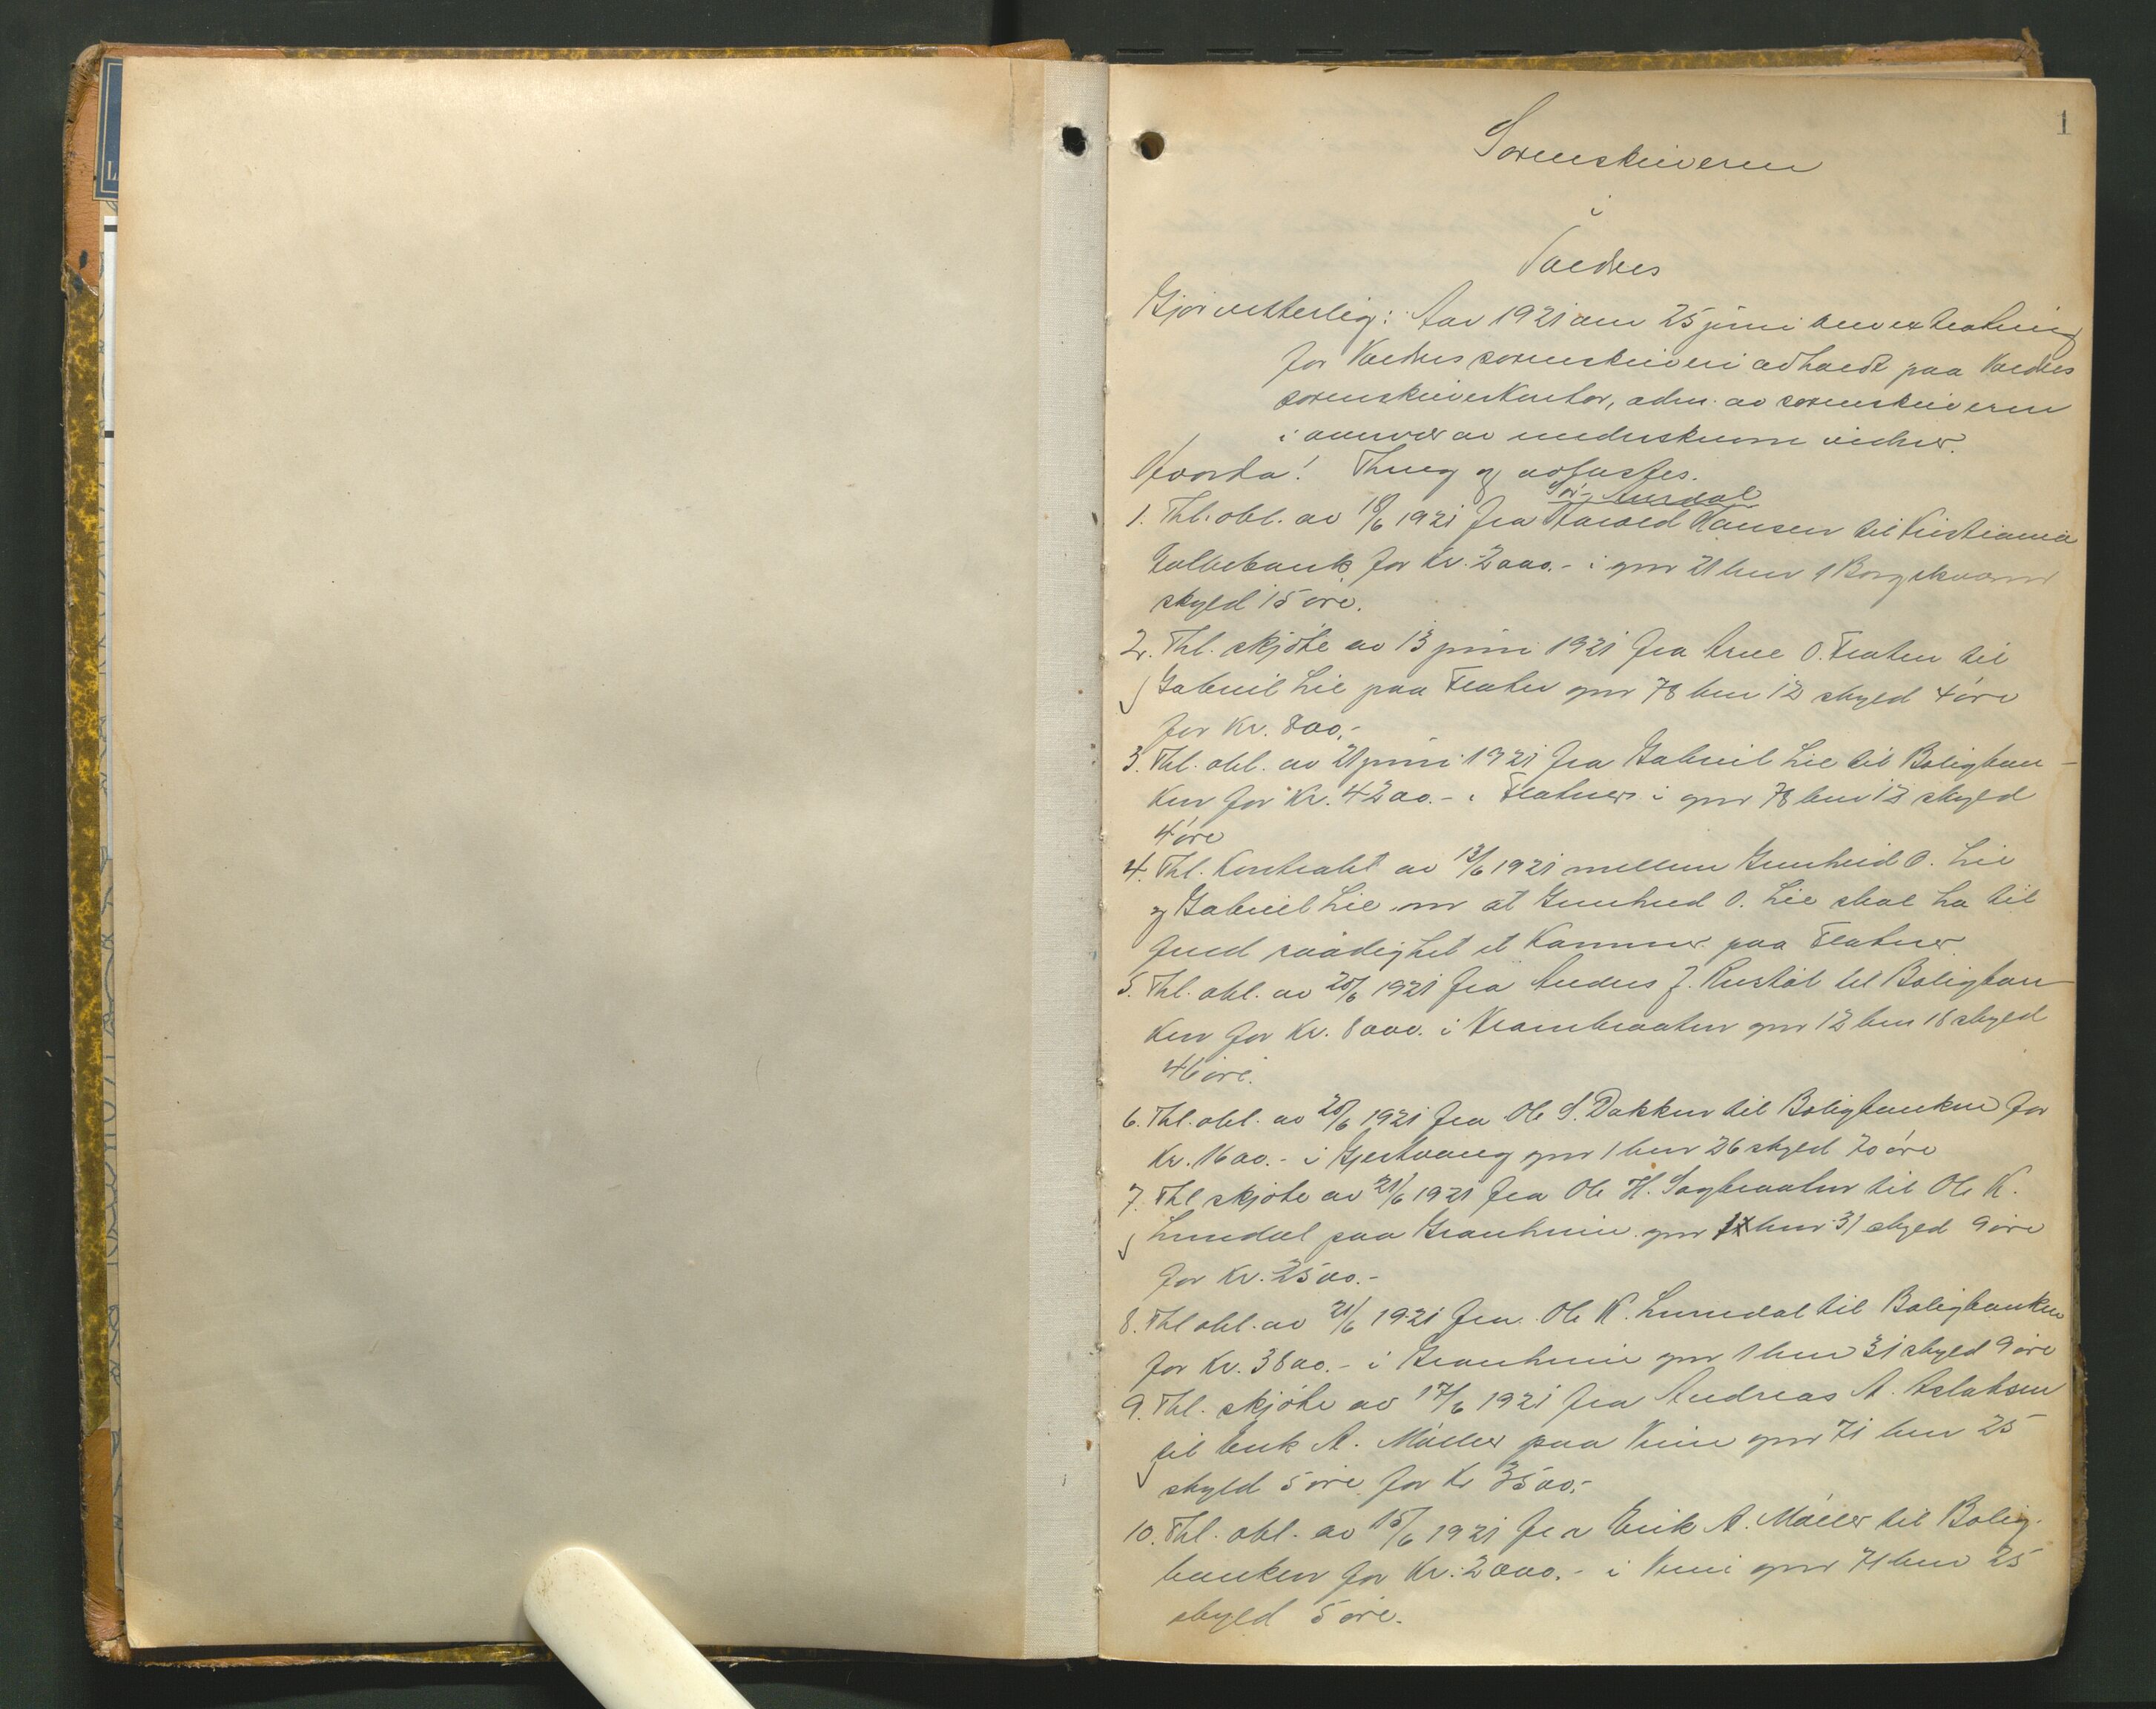 1
Sorenskriveren
i
Valdres
Gjør vitterlig: Aar 1921 den 25 juni blev extrating
for Valdres sorenskriveri avholdt paa Valdres
sorenskriverkontor, adm. av sorenskriveren
i nærvær av underskrevne vidner.
Hvorda! Thing og avlystes.
Sør-Aurdal
1. Thl. obl. av 18/6 1921 fra Harald Hansen til Kristiania
Folkebank for Kr. 2000.- i gnr 21 bnr 9
skyld 15 øre.
2. Thl. skjøte av 13 juni 1921 fra Arne O. Flaten til
Gabriel Lie paa Flaten gnr 78 bnr 12 skyld 4 øre
for Kr. 800.-
3. Thl. obl. av 21 juni 1921 fra Gabriel Lie til Boligban-
ken for Kr. 4200.- i Flatner i gnr 78 bnr 12 skyld
4 øre
4. Thl. Kontrakt av 13/6 1921 mellem Gunhild O. Lie
og Gabriel Lie om at Gunhild O. Lie skal ha til
fuld raadighet et Kammer paa Flatner
5. Thl. obl. av 20/6 1921 fra Anders J. Rustøl til Boligban-
ken for Kr. 8000. i gnr 12 bnr 18 skyld
46 øre.
6. Thl. obl. av 20/6 1921 fra Ole S. Dokken til Boligbanken for
Kr. 1600.- i Gjestvang gnr 1 bnr 26 skyld 70 øre
7. Thl skjøte av 21/6 1921 fra Ole H. Sagbraaten til Ole K.
Lundal paa Granheim gnr 1 bnr 31 skyld 9 øre
for Kr. 2500.-
8. Thl obl. av 21/6 1921 fra Ole K. Lundal til Boligbanken
for Kr. 3800.- i Granheim gnr 1 bnr 31 skyld 9 øre
9. Thl. skjøte av 17/6 1921 fra Andreas A. Aslaksen
til Erik A. Møller paa gnr 71 bnr 25
skyld 5 øre for Kr 3500.-
10. Thl. obl. av 15/6 1921 fra Erik A. Møller til Bolig-
banken for Kr. 2000.- i gnr 71 bnr 25
skyld 5 øre.